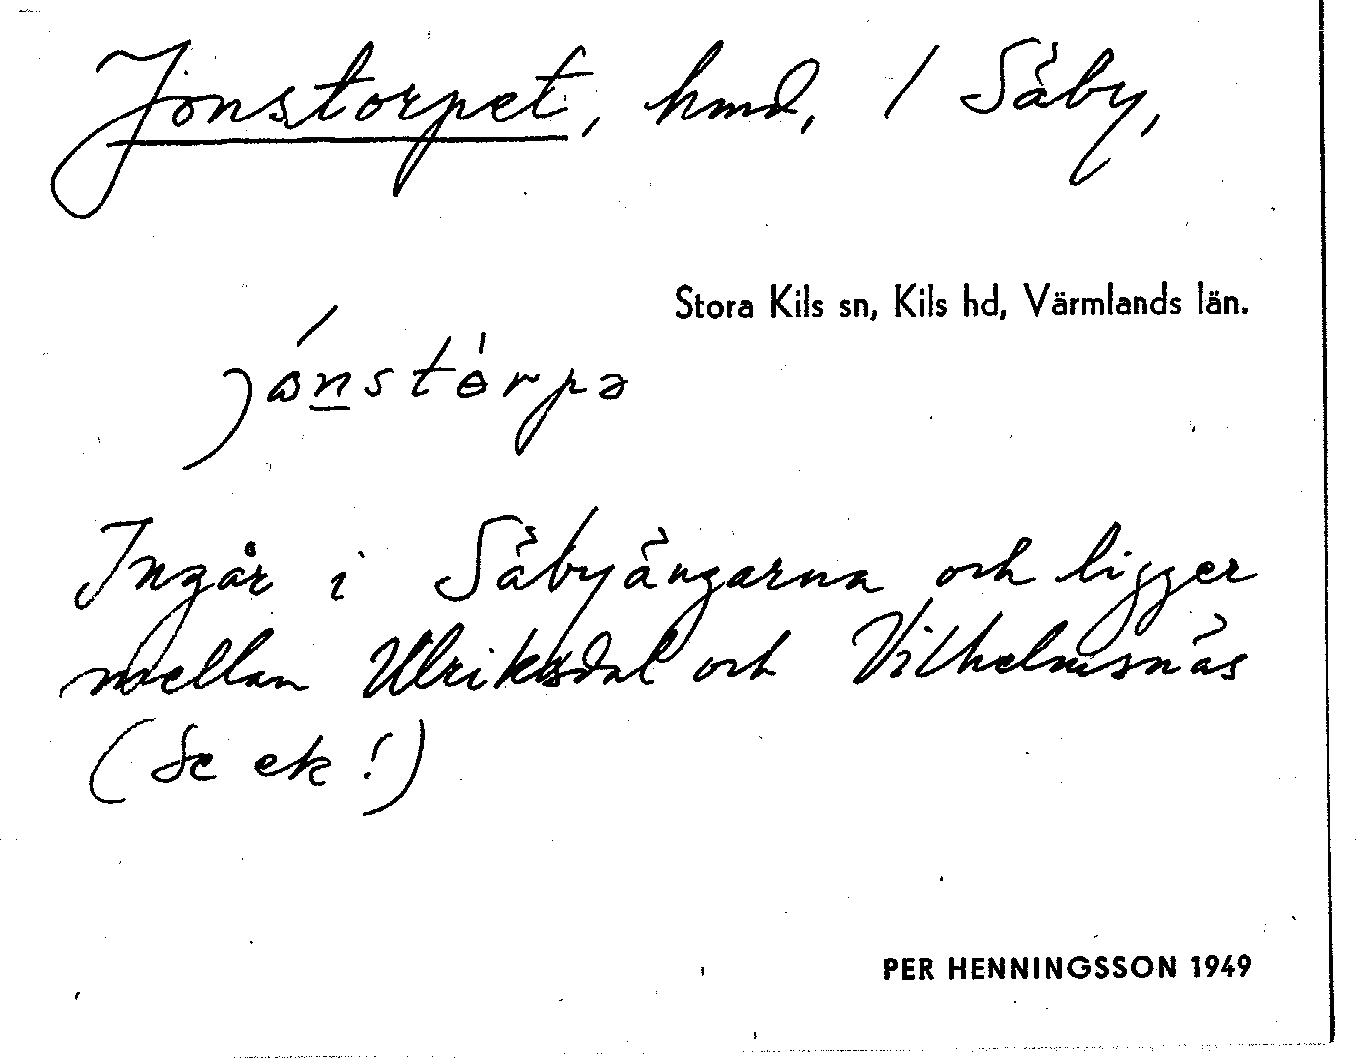 Jonstorpet, hmd, / Säby,
Stora Kils sn, Kils hd, Värmlands län.
jónstórpə
Ingår i Säbyängarna och ligger
mellan Ulriksdal och Vilhelmsnäs
(Se ek!)
PER HENNINGSSON 1949